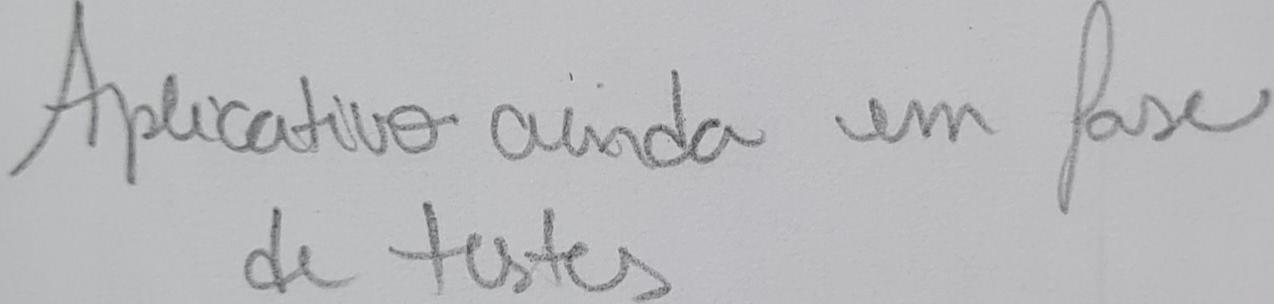 Aplicativo ainda em fase
de testes